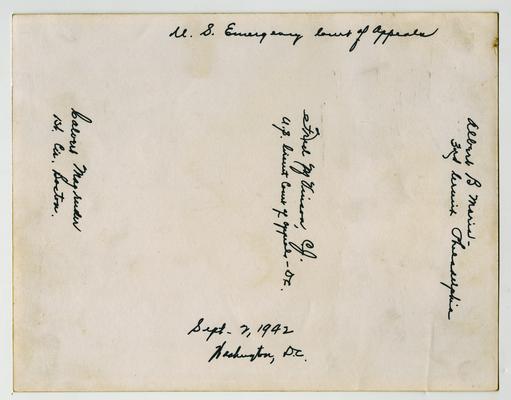 U. S. Emergency Court of Appeals
Calvert Magruder
1st. Cir. Boston.
Fred M Vinson, CJ.
U.S. Circuit Court of Appeals - DC.
Albert B Maris -
3rd Circuit Philadelphia
Sept - 2, 1942
Washington, D.C.